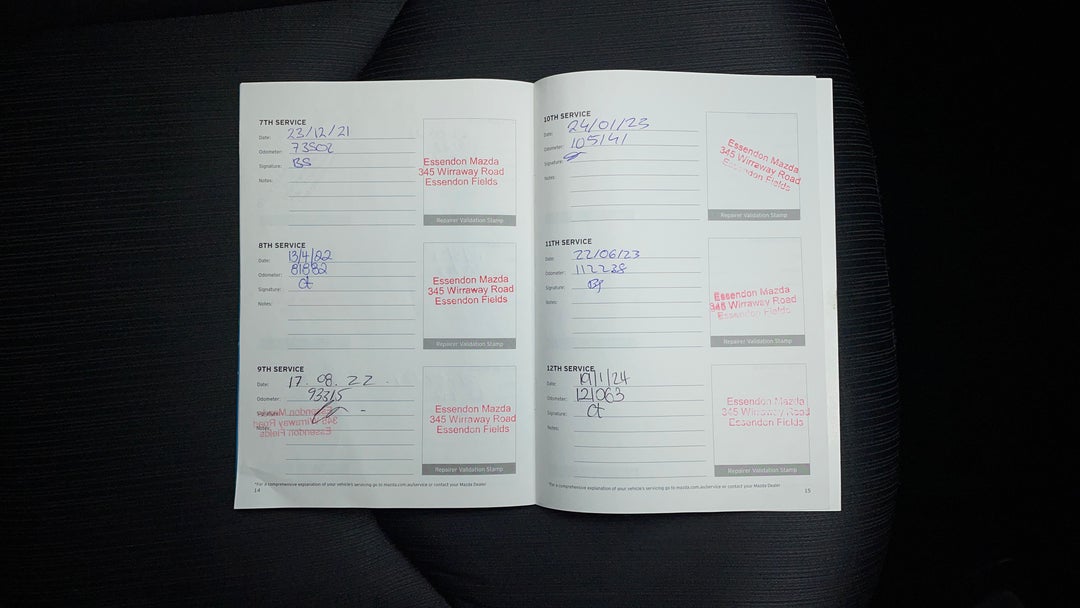 7TH SERVICE
Date: 23/12/21
Odometer: 73502
Signature: BS
Notes:
Essendon Mazda
345 Wirraway Road
Essendon Fields
Repairer Validation Stamp
8TH SERVICE
Date: 13/4/22
Odometer: 81882
Signature: Ct
Notes:
Essendon Mazda
345 Wirraway Road
Essendon Fields
Repairer Validation Stamp
9TH SERVICE
Date: 17.08.22
Odometer: 93315
Signature:
Notes:
Essendon Mazda
345 Wirraway Road
Essendon Fields
Essendon Mazda
345 Wirraway Road
Essendon Fields
Repairer Validation Stamp
*For a comprehensive explanation of your vehicle's servicing go to mazda.com.au/service or contact your Mazda Dealer
14
10TH SERVICE
Date: 24/01/23
Odometer: 105141
Signature:
Notes:
Essendon Mazda
345 Wirraway Road
Essendon Fields
Repairer Validation Stamp
11TH SERVICE
Date: 22/06/23
Odometer: 112238
Signature:
Notes:
Essendon Mazda
345 Wirraway Road
Essendon Fields
Repairer Validation Stamp
12TH SERVICE
Date: 19/1/24
Odometer: 121063
Signature: Ct
Notes:
Essendon Mazda
345 Wirraway Road
Essendon Fields
Repairer Validation Stamp
*For a comprehensive explanation of your vehicle's servicing go to mazda.com.au/service or contact your Mazda Dealer
15